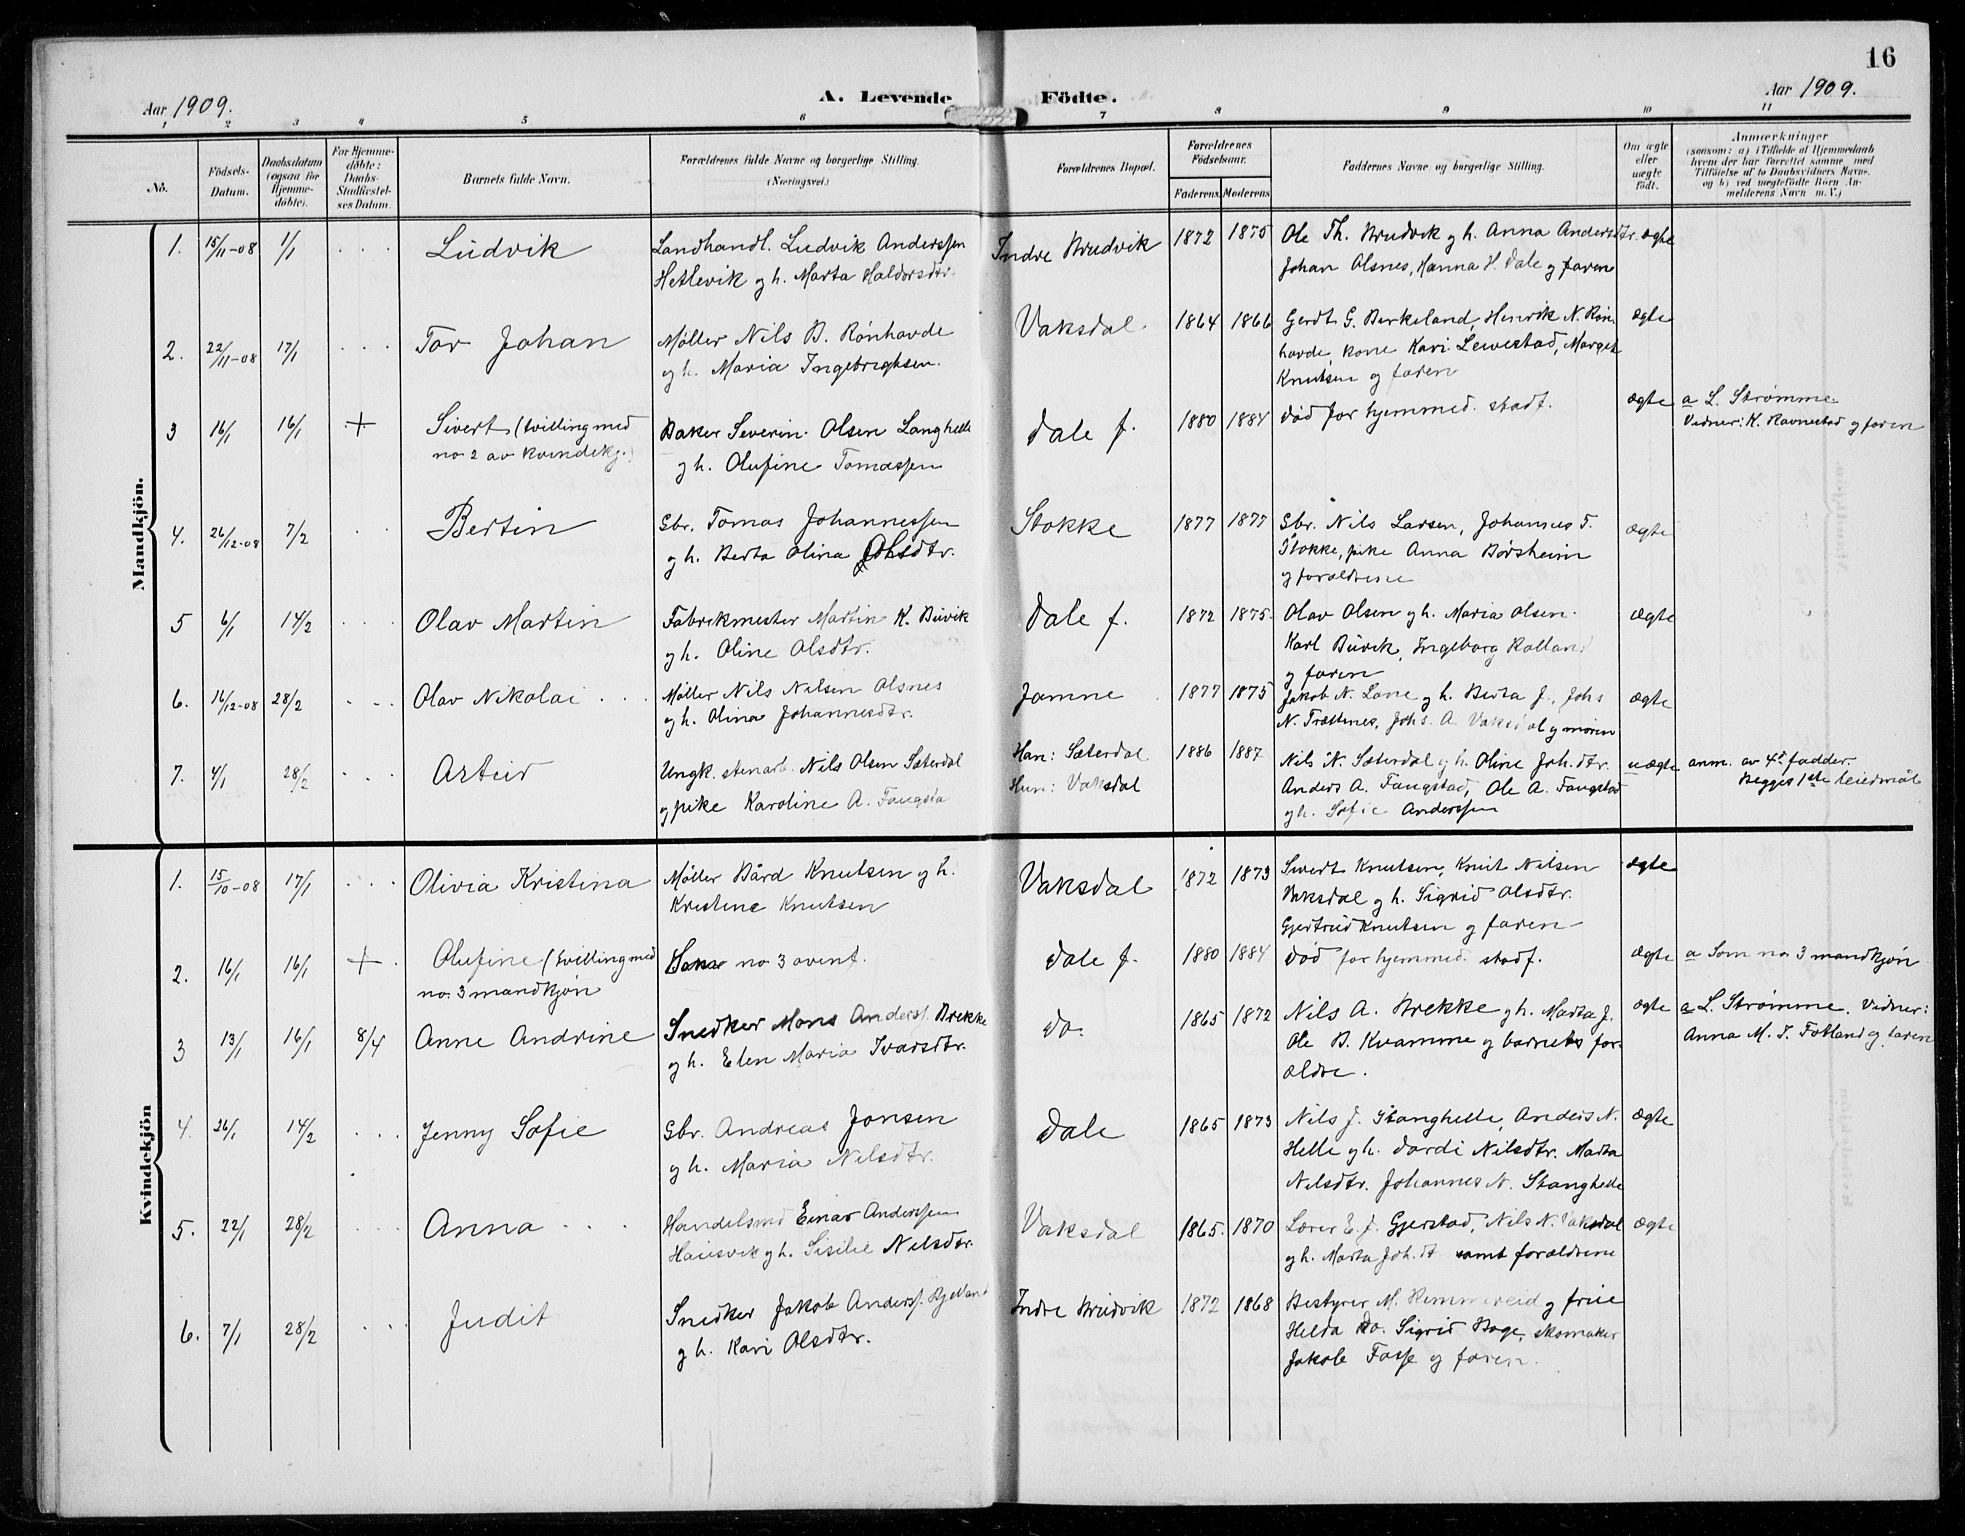 16
Aar 1909.
A. Levende Födte.
Aar 1909.
1 2 3 4 5 6 7 8 9 10 11
No.
Födsels-
Datum.
Daabsdatum
(ogsaa for
Hjemme-
döbte).
For Hjemme-
döbte:
Daabs-
Stadfæstel-
ses Datum.
Barnets fulde Navn.
Forældrenes fulde Navne og borgerlige Stilling.
(Næringsvei.)
Forældrenes Bopæl.
Forældrenes
Födselsaar.
Faderens. Moderens.
Faddernes Navne og borgerlige Stilling.
Om ægte
eller
uægte
født.
Anmærkninger
(saasom: a) i Tilfælde af Hjemmedaab
hvem der har forrettet samme, med
Tilföielse af to Daabsvidners Navne,
og b) ved uægtefödte Börn An-
melderens Navn m. V.)
Mandkjön.
1. 15/11-08 1/1 . . . Ludvik
Landhandl. Ludvik Anderssen
Hetlevik g h. Marta Haldorsdtr.
Indre Brudvik 1872 1875
Ole Th. Bruvik g h. Anna Andersdtr.
Johan Olsnes, Hanna H. Dale g faren
ægte
2. 22/11-08 17/1 . . . Tor Johan
Møller Nils B. Rønhovde
g h. Maria Ingebrigtsen.
Vaksdal. 1864 1866
Gerdt G. Birkeland, Henrik N. Røn
hovde, kone Kari Levestad, Margit
Knutsen g faren
ægte
3 16/1 16/1 + Sivert (tvilling med
no 2 av kvindekj.)
Baker Severin Olsen Langhelle
g h. Olufine Tomassen
Dale f. 1880 1884
død før hjemmed. stadf.
ægte
a L. Strømme
Vidner: K. Ravnestad g faren
4. 26/12-08 7/2 . . Bertin
Gbr. Tomas Johannessen
g h. Berta Olina Olsdtr.
Stokke 1877 1877
Gbr. Nils Larsen, Johannes T.
Stokke, pike Anna Børsheim
g forældrene
ægte
5 6/1 14/2 . . . Olav Martin
Fabrikmester Martin K. Buvik
g h. Oline Olsdtr.
Dale f. 1872 1875.
Olav Olsen g h. Maria Olsen.
Karl Buvik, Ingeborg Rolland
g faren
ægte
6. 16/12-08 28/2 . . . Olav Nikolai . .
Møller Nils Nilsen Olsnes
g h. Olina Johannesdtr.
Jamne 1877 1875
Jakob N. Lone g h. Berta J., Johs
N. Trættenes, Johs. A. Vaksdal g moren
ægte
7. 4/1 28/2 . . . Asteir
Ungk. stenarb. Nils Olsen Sæterdal
g pike Karoline A. Fangsta
Han: Sæterdal
Hun: Vaksdal
1886 1887
Nils N. Sæterdal g h. Oline Joh.dtr.
Anders A. Fangstad, Ole A. Fangstad
g h. Sofie Anderssen
uægte
anm. av 4de fadder.
Begges 1ste leiermål
Kvindekjön
1. 15/10-08 17/1 . . . Olivia Kristina
Møller Bård Knutsen g h.
Kristine Knutsen
Vaksdal 1872 1873
Sivert Knutsen, Knut Nilsen
Vaksdal g h. Sigrid Olsdtr.
Gjertrud Knutsen g faren
ægte
2. 16/1 16/1 + . Olufine (tvilling med
no. 3 mandkjøn
Som no 3 ovenf.
Dale f. 1880 1884
død før hjemmed. stadf.
ægte
a Som no. 3 mandkjøn
3 13/1 16/1 8/4 Anne Andrine
Snedker Mons Anderss. Brekke
g h. Elen Maria Ivarsdtr.
do. 1865 1872
Nils A. Brekke g h. Marta J.
Ole B. Kvamme g barnets for-
ældre.
ægte
a L. Strømme. Vidner:
Anna M. T. Fotland g faren
4. 26/1 14/2 . . . Jenny Sofie
Gbr. Andreas Jonsen
g h. Maria Nilsdtr.
Dale 1865 1873
Nils J. Stanghelle, Anders N.
Helle g h. Dordi Nilsdtr. Marta
Nilsdtr. Johannes N. Stanghelle
ægte
5. 22/1 28/2 . . . Anna . . .
Handelsmd Einar Anderssen
Hausvik g h. Sisilie Nilsdtr.
Vaksdal 1865. 1870
Lærer E. J. Gjerstad, Nils N. Vaksdal
g h. Marta Joh. dt samt forældrene
ægte
6. 7/1 28/2 . . . Judit
Snedker Jakob Anderss. Gjelland
g h. Kari Olsdtr.
Indre Bruvik 1872 1868
Bestyrer M. Rimmereid g frue
Helda do. Sigrid Hage, skomaker
Jakob Fosse g faren.